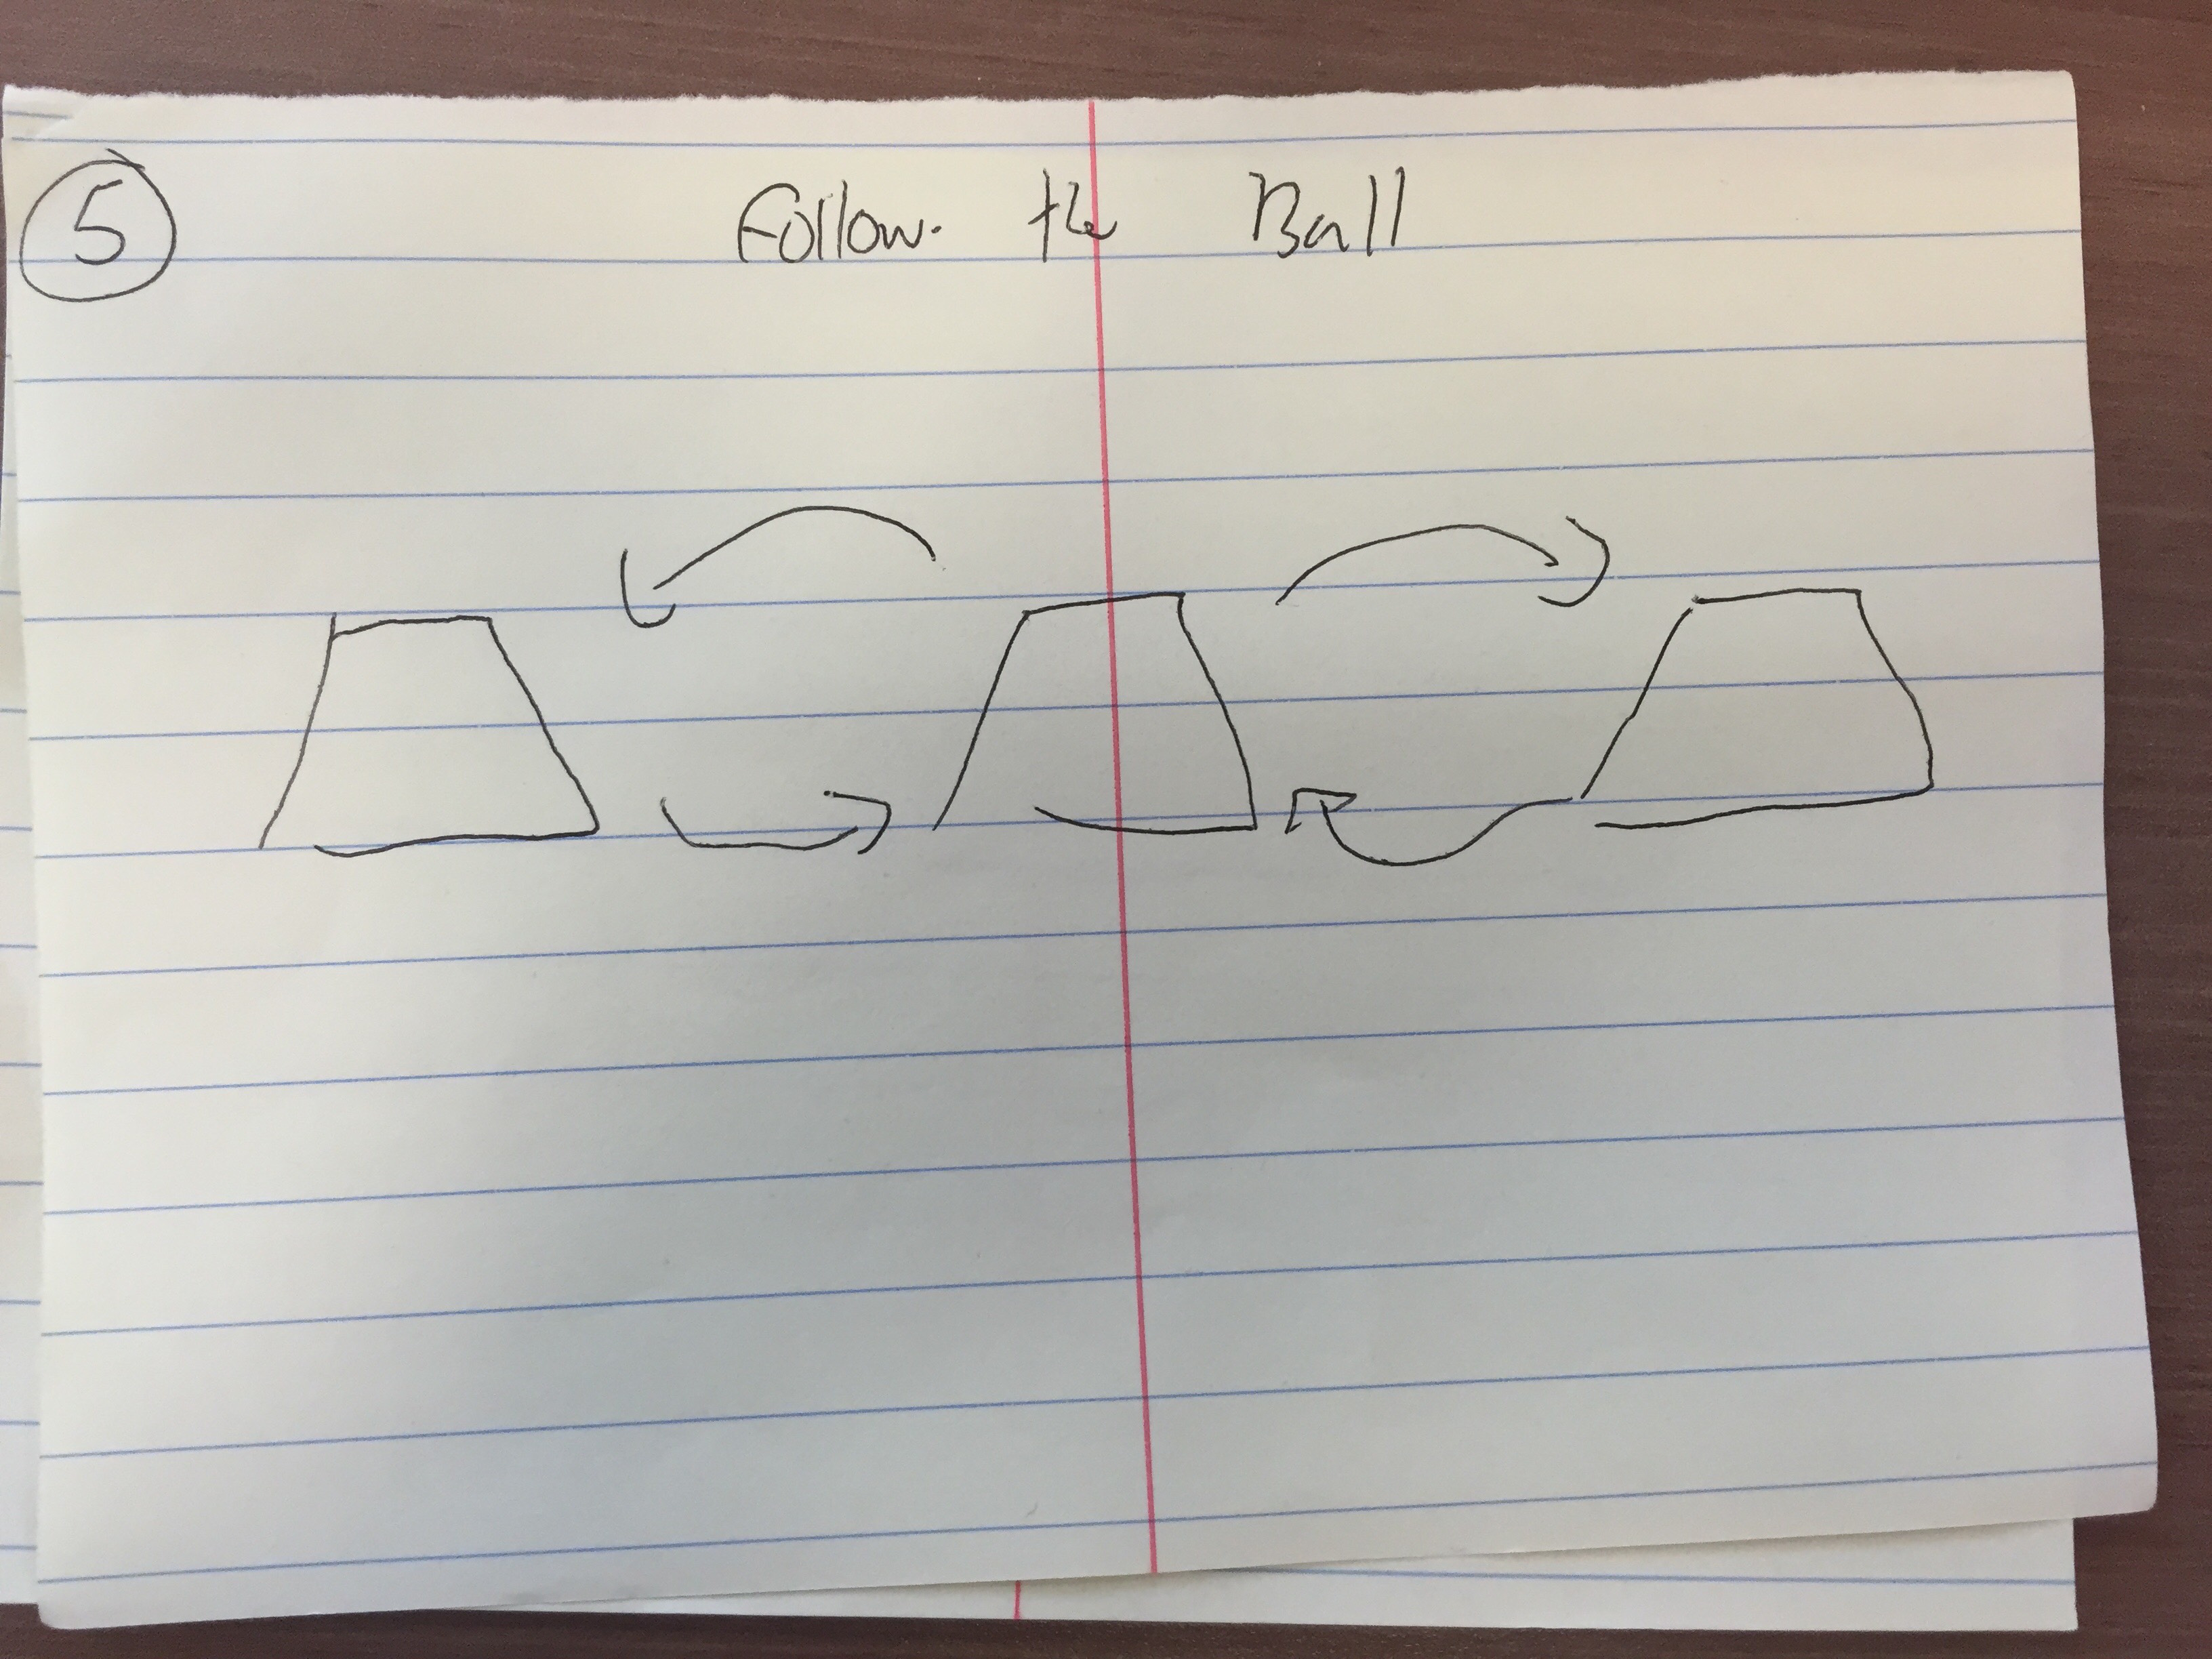 5
Follow the Ball